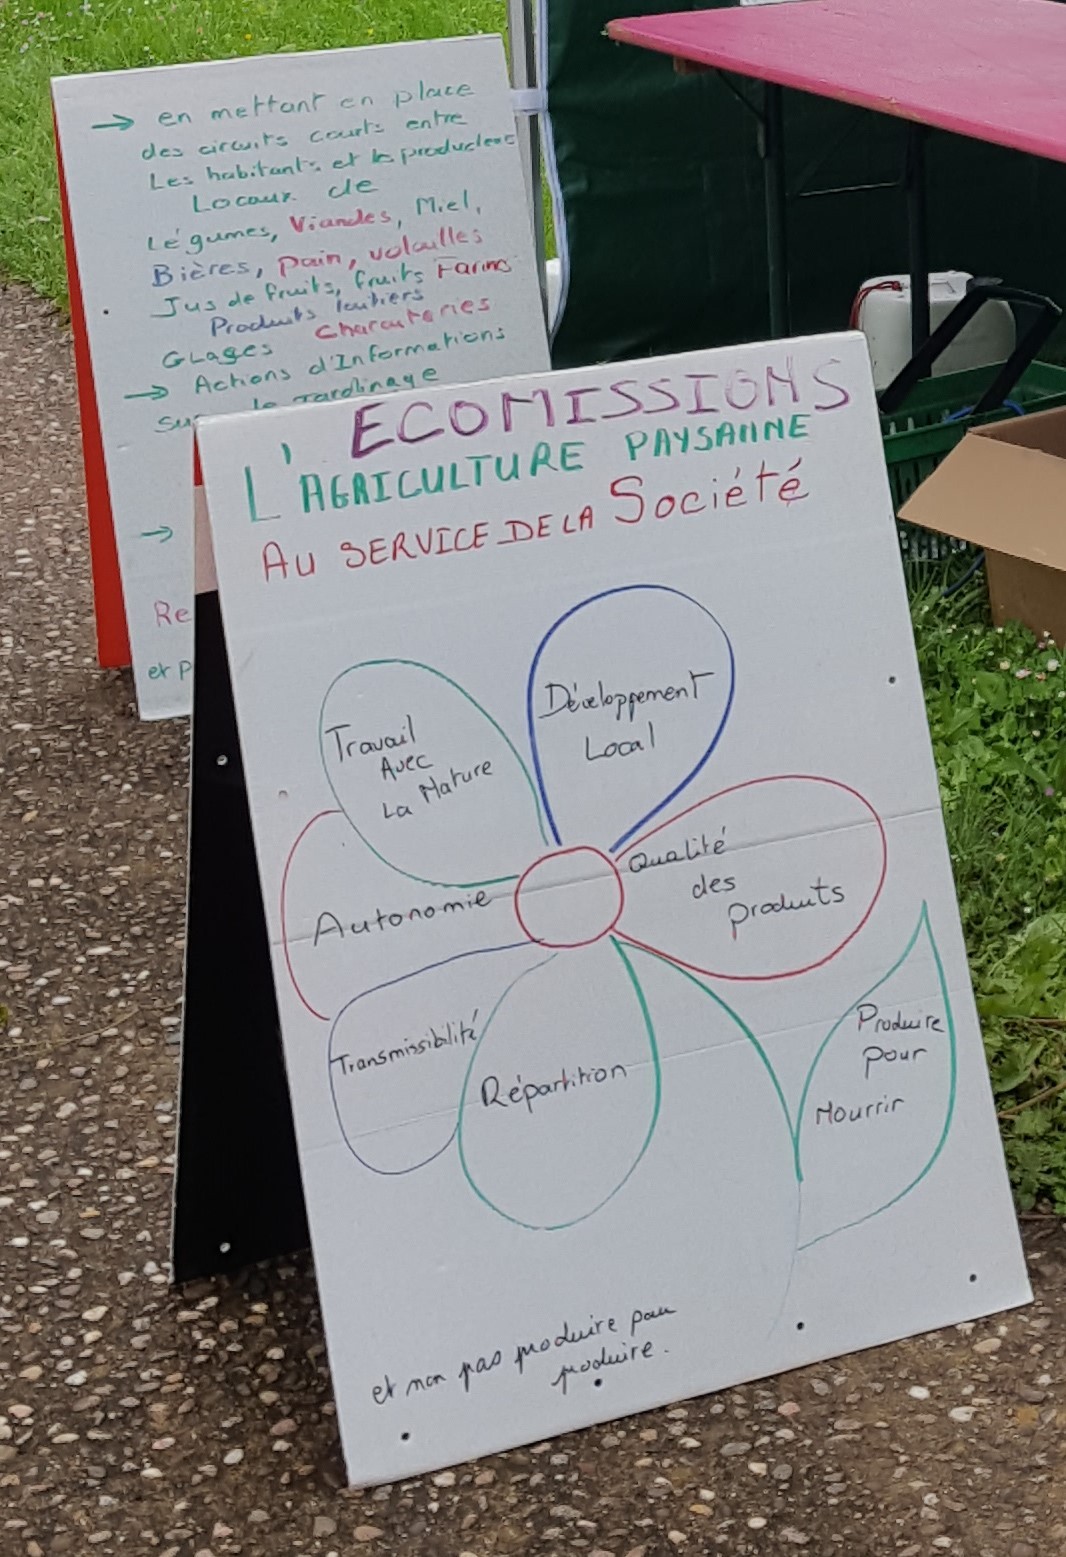 → en mettant en place
des circuits courts entre
Les habitants et les producteurs
Locaux de
Légumes, Viandes, Miel,
Bières, pain, volailles
Jus de fruits, fruits Farins
Produits laitiers
GLages Charcuteries
→ Actions d'Informations
sur le Jardinage
→
Re
et p
ECOMISSIONS
L'AGRICULTURE PAYSANNE
AU SERVICE DE LA Société
Développement
Local
Travail
Avec
La Nature
Qualité
des
produits
Autonomie
Transmissibilité
Répartition
Produire
pour
Nourrir
et non pas produire pour
produire.